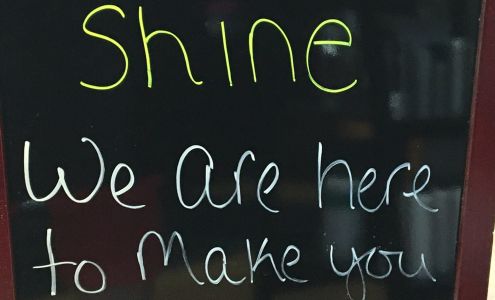 Shine
We are here
to Make you